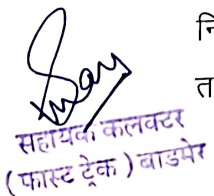 नि
त
सहायक कलक्टर
( फास्ट ट्रेक ) बाडमेर